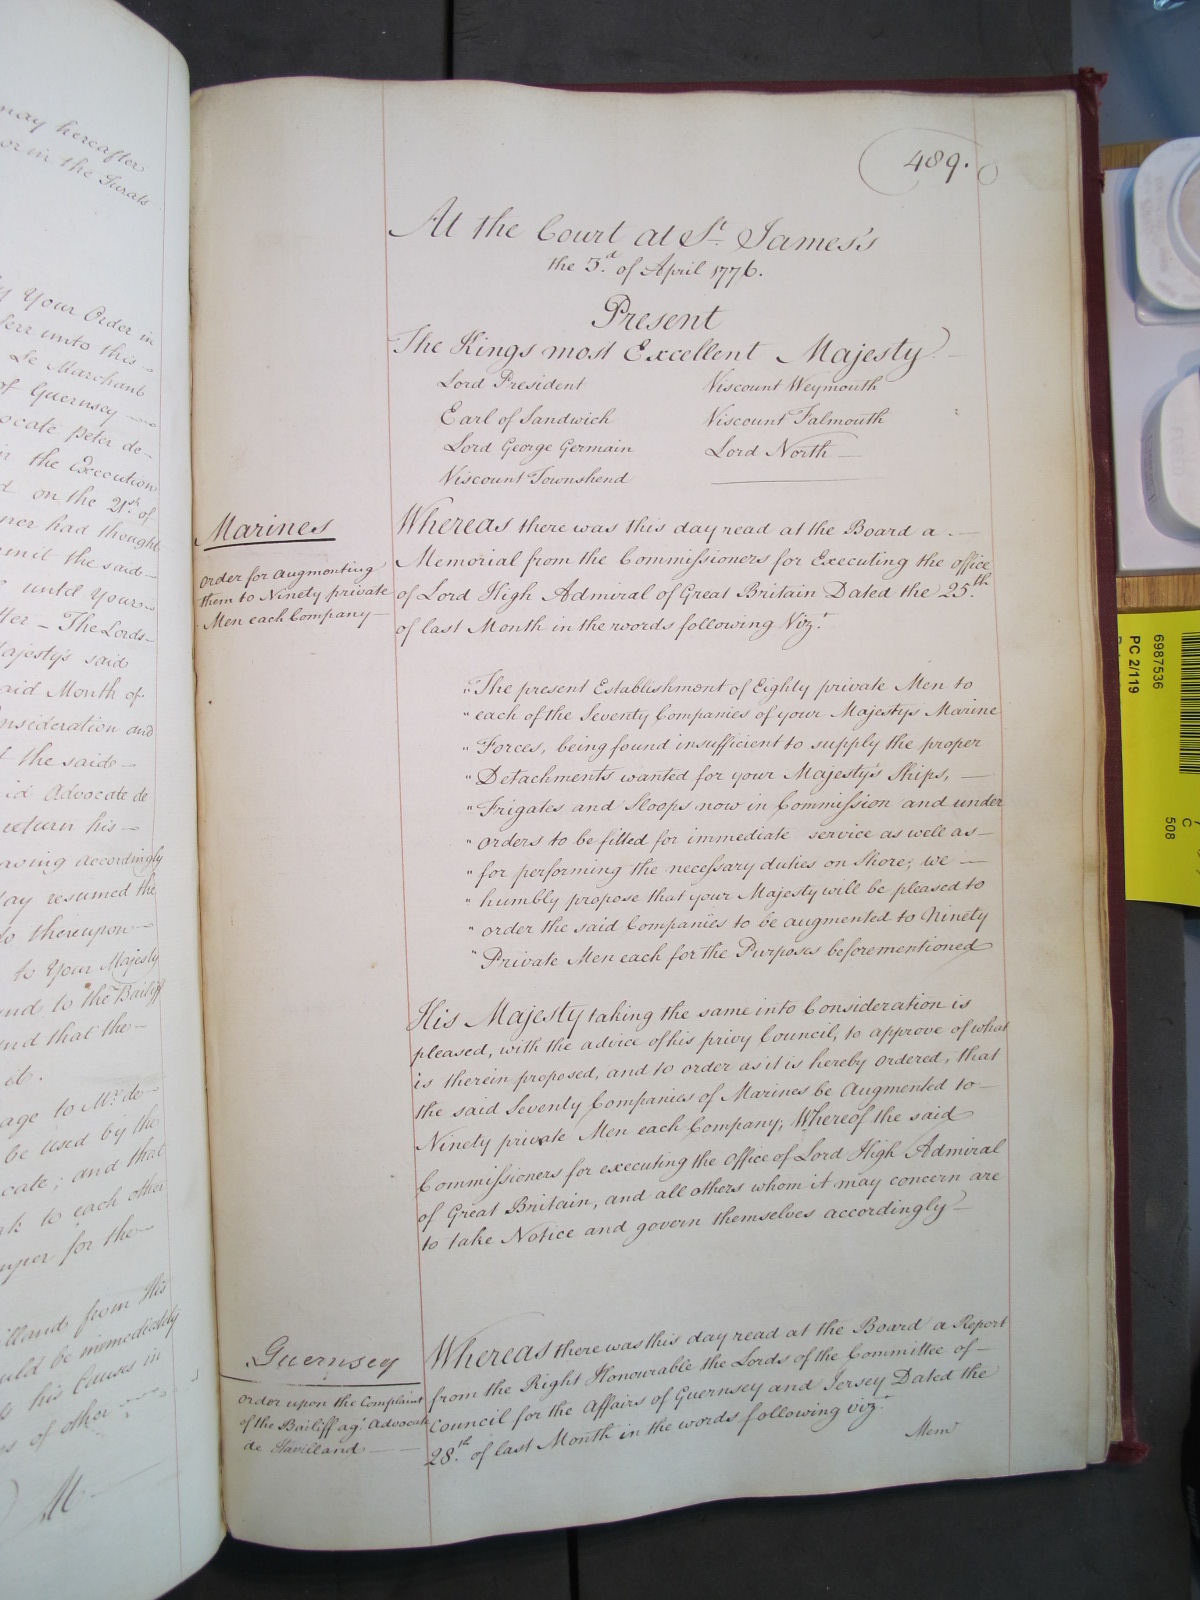 may hereafter
or in the Jurats
Your Order in
unto this
Le Marchant
of Guernsey
Peter de
the Execution
on the 21st of
had thought
the said
until Yours
The Lords
Majesty's said
said Month of
Consideration and
the said
Advocate de
return his
accordingly
resumed the
thereupon
to Your Majesty
and to the Bailiff
and that the
it.
to Mr. de
be used by the
and that
to each other
for the
from His
be immediately
his Causes in
of other
489.
At the Court at St. James's
the 3d. of April 1776.
Present
The Kings most Excellent Majesty
Lord President Viscount Weymouth
Earl of Sandwich Viscount Falmouth
Lord George Germain Lord North
Viscount Townshend
Marines
Order for Augmenting
them to Ninety private
Men each Company
Whereas there was this day read at the Board a
Memorial from the Commissioners for Executing the office
of Lord High Admiral of Great Britain Dated the 25.th
of last Month in the words following Vizt.
"The present Establishment of Eighty private Men to
"each of the Seventy Companies of your Majestys Marine
"Forces, being found insufficient to supply the proper
"Detachments wanted for your Majesty's Ships,
"Frigates and Sloops now in Commission and under
"orders to be fitted for immediate service as well as
"for performing the necessary duties on Shore; we
"humbly propose that your Majesty will be pleased to
"order the said Companies to be augmented to Ninety
"Private Men each for the Purposes beforementioned
His Majesty taking the same into Consideration is
pleased, with the advice of his privy Council, to approve of what
is therein proposed, and to order as it is hereby Ordered, that
the said Seventy Companies of Marines be Augmented to
Ninety private Men each Company; Whereof the said
Commissioners for executing the Office of Lord High Admiral
of Great Britain, and all others whom it may concern are
to take Notice and govern themselves accordingly
Guernsey
Order upon the Complaint
of the Bailiff agt. Advocate
de Havilland
Whereas there was this day read at the Board a Report
from the Right Honourable the Lords of the Committee of
Council for the Affairs of Guernsey and Jersey Dated the
28.th of last Month in the words following vizt.
Mem
6987536
PC 2/119
C
508